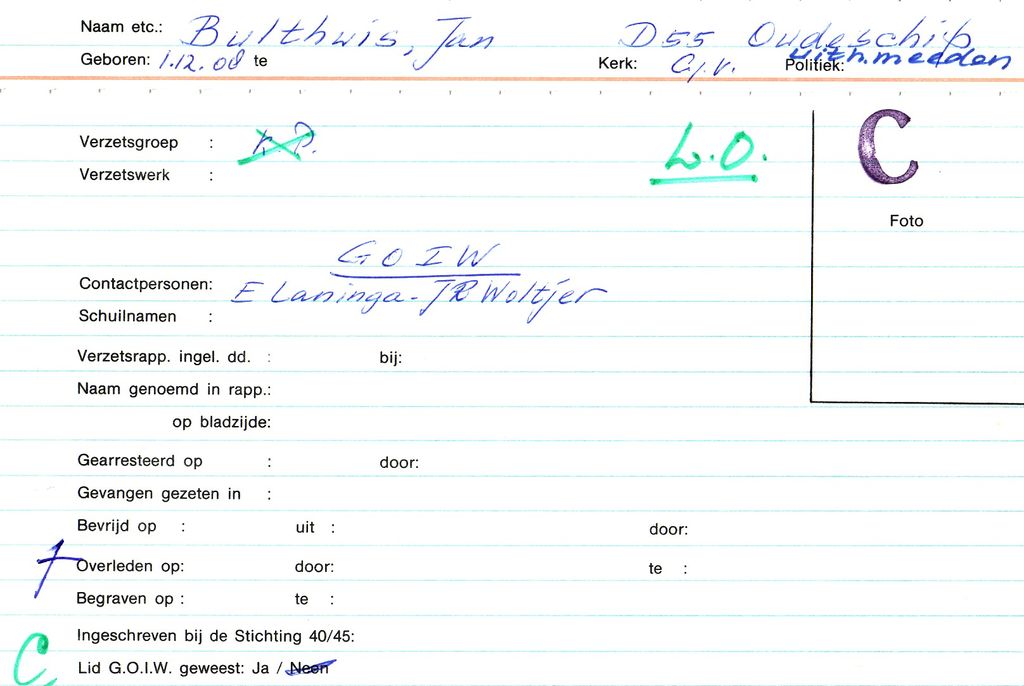 Naam etc.: Bulthuis, Jan D55 Oudeschip
Geboren: 1.12.08 te Kerk: G.V. Politiek: uith.meeden
Verzetsgroep : K.P. L.O. C
Verzetswerk :
Foto
GOIW
Contactpersonen: E Laninga - JR Woltjer
Schuilnamen :
Verzetsrapp. ingel. dd. : bij:
Naam genoemd in rapp.:
op bladzijde:
Gearresteerd op : door:
Gevangen gezeten in :
Bevrijd op : uit : door:
† Overleden op: door: te :
Begraven op : te :
Ingeschreven bij de Stichting 40/45:
C Lid G.O.I.W. geweest: Ja / Neen